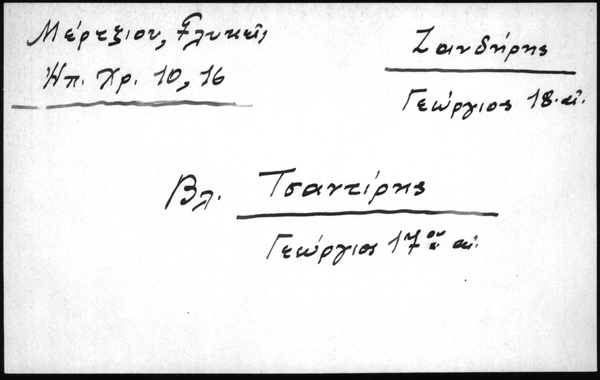 Μέρτζιου, Γλυκεῖς
Ἠπ. Χρ. 10, 16
Ζανδήρης
Γεώργιος 18. αἰ.
Βλ. Τσαντίρης
Γεώργιος 17ου αἰ.